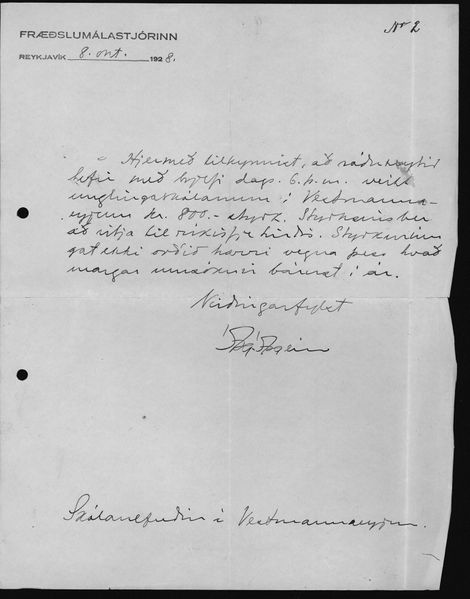 Nr 2
FRÆÐSLUMÁLASTJÓRINN
REYKJAVÍK 8. okt. 1928.
Hjermeð tilkynnist, að ráðuneytið
hefir með brjefi dags. 6. þ.m. veitt
unglingaskólanum í Vestmanna-
eyjum kr. 800.- styrk. Styrksins ber
að vitja til ríkisfjehirðis. Styrkurinn
gat ekki orðið hærri vegna þess hvað
margar umsóknir bárust í ár.
Virðingarfylst
Skólanefndin í Vestmannaeyjum.